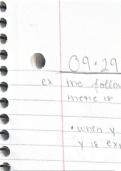 09.29
ex the follow
there is
• when y
y is ex